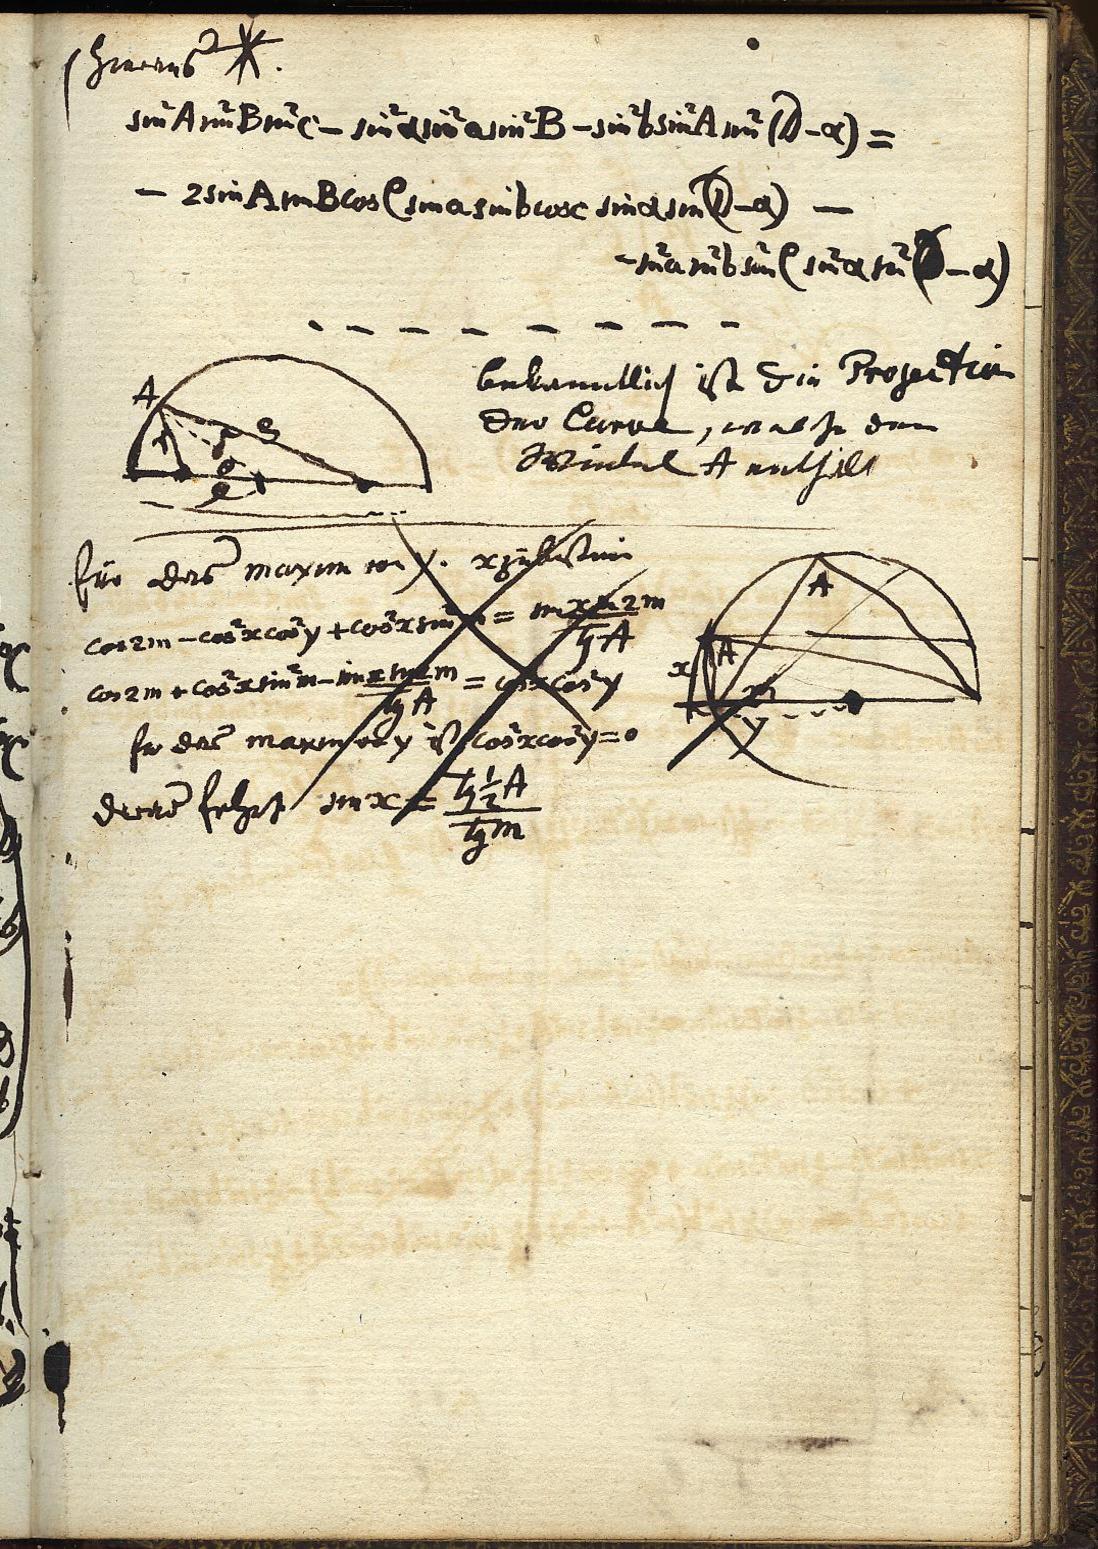 hieraus *.
sin²A sin²B sin²C – sin²α sin²a sin²B – sin²b sin²A sin²(D–α) =
– 2 sin A sin B cos C sin a sin b cos c sin α sin(D–α) –
– sin²a sin²b sin²C sin²α sin²(D–α)
bekanntlich ist die Projection
der Curve, welche den
Winkel A enthält
A
für das maximum y. x zu
cos2m – cos²x cos²y + cos²x sin²m = sin x sin 2m / tg A
cos2m + cos²x sin²m – sin x sin 2m / tg A = cos²x cos²y
für das maximum y ist cos²x cos²y = 0
daraus folgt sin x = tg ½A / tg m
A
A
x
m
y